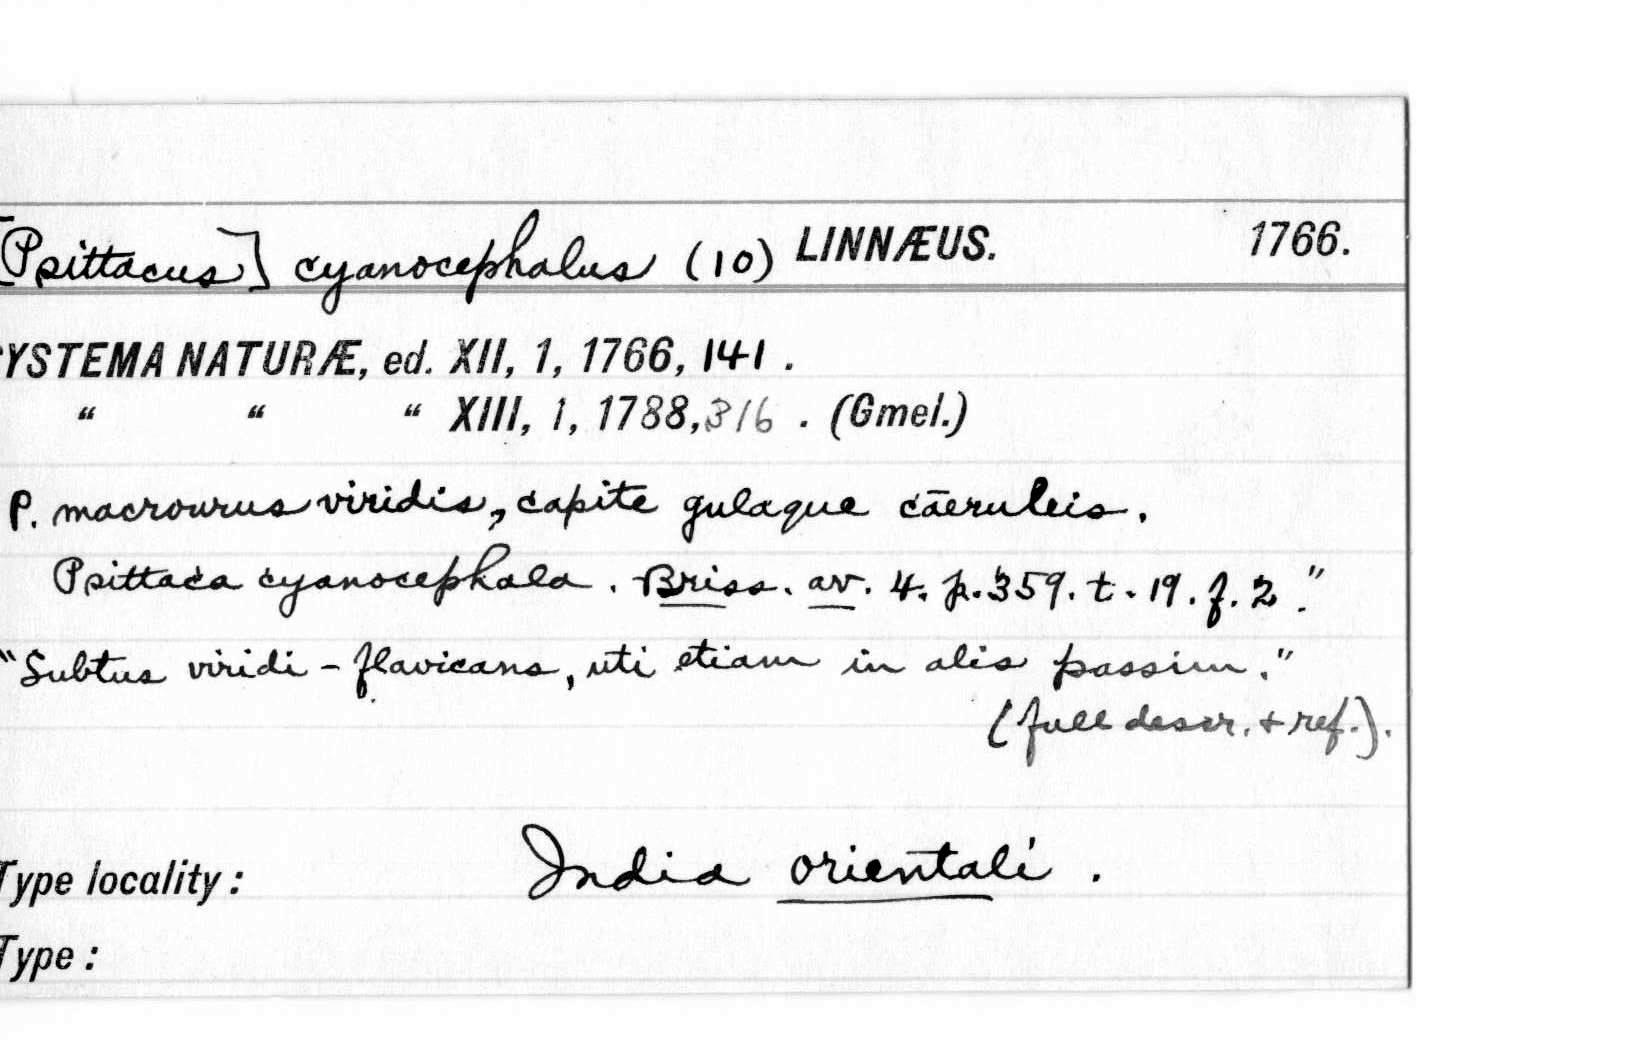 [Psittacus] cyanocephalus (10) LINNÆUS. 1766.
YSTEMA NATURÆ, ed. XII, 1, 1766, 141 .
“ “ “ XIII, 1, 1788, 316 . (Gmel.)
P. macrourus viridis, capite gulaque cāeruleis.
Psittaca cyanocephala . Briss. av. 4. p. 359. t. 19. f. 2."
"Subtus viridi-flavicans, uti etiam in alis passim."
(full descr. + ref.).
Type locality: India orientali .
Type: